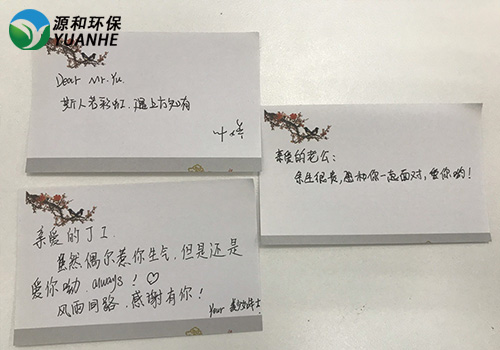 源和环保
YUANHE
Dear Mr.Yu.
斯人若彩虹,遇上方知有
亲爱的老公:
余生很长,愿和你一起面对,爱你哟!
亲爱的丁工.
虽然偶尔惹你生气,但是还是
爱你呦,always!♡
风雨同路,感谢有你!
Your